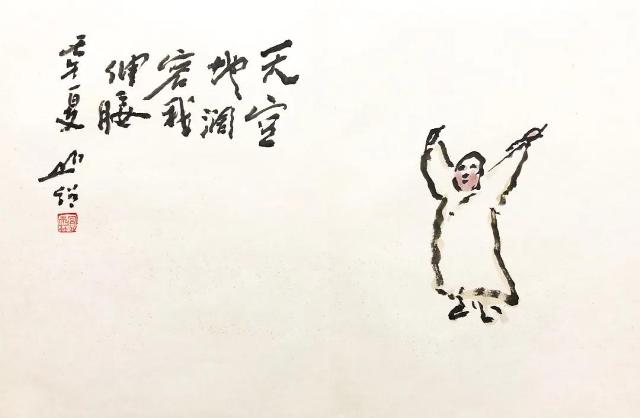 天空
地阔
容我
伸腰
壬午夏